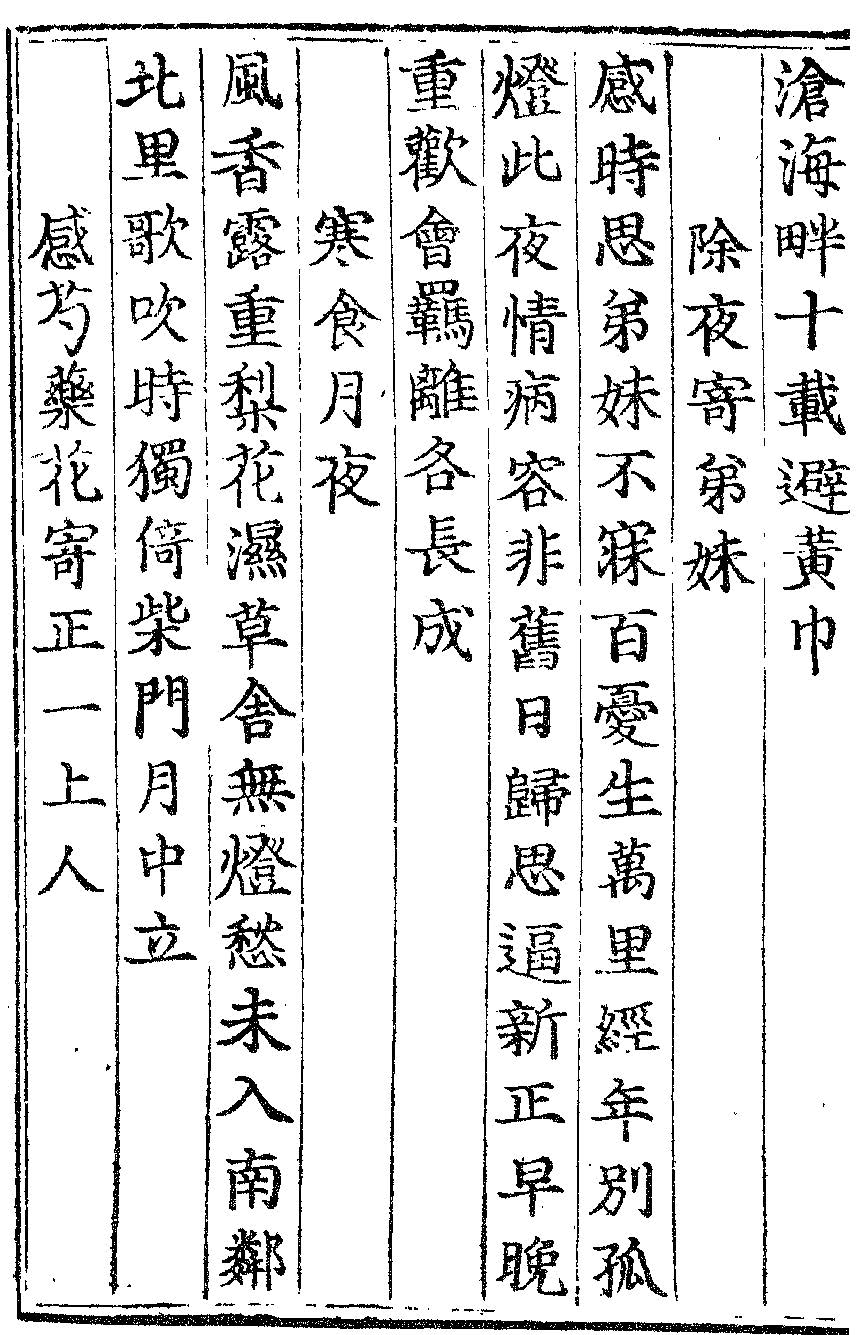 滄海畔十載避黃巾
除夜寄弟妹
感時思弟妹不寐百憂生萬里經年別孤
燈此夜情病容非舊日歸思逼新正早晚
重歡會羈離各長成
寒食月夜
風香露重梨花濕草舍無燈愁未入南鄰
北里歌吹時獨倚柴門月中立
感芍藥花寄正一上人